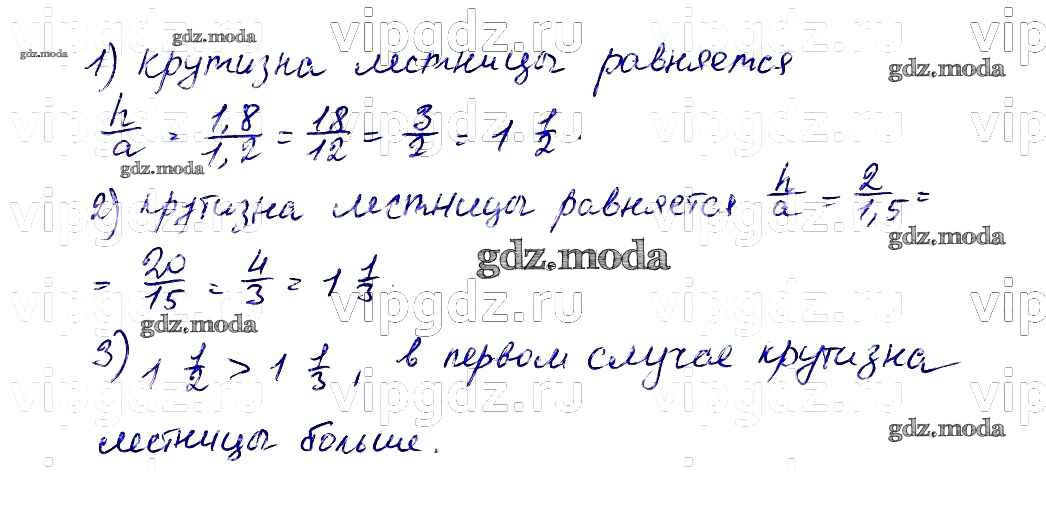 vipgdz.ru vipgdz.ru vipgdz.ru vip
gdz.moda gdz.moda
1) крутизна лестницы равняется gdz.moda
vipgdz.ru vipgdz.ru vipgdz.ru vip
h/a = 1,8/1,2 = 18/12 = 3/2 = 1 1/2.
gdz.moda
2) крутизна лестницы равняется h/a = 2/1,5 =
vipgdz.ru vipgdz.ru vipgdz.ru vip
gdz.moda gdz.moda
= 20/15 = 4/3 = 1 1/3.
vipgdz.ru vipgdz.ru vipgdz.ru vip
gdz.moda
3) 1 1/2 > 1 1/3, в первом случае крутизна
vipgdz.ru vipgdz.ru vipgdz.ru vip
лестницы больше. gdz.moda